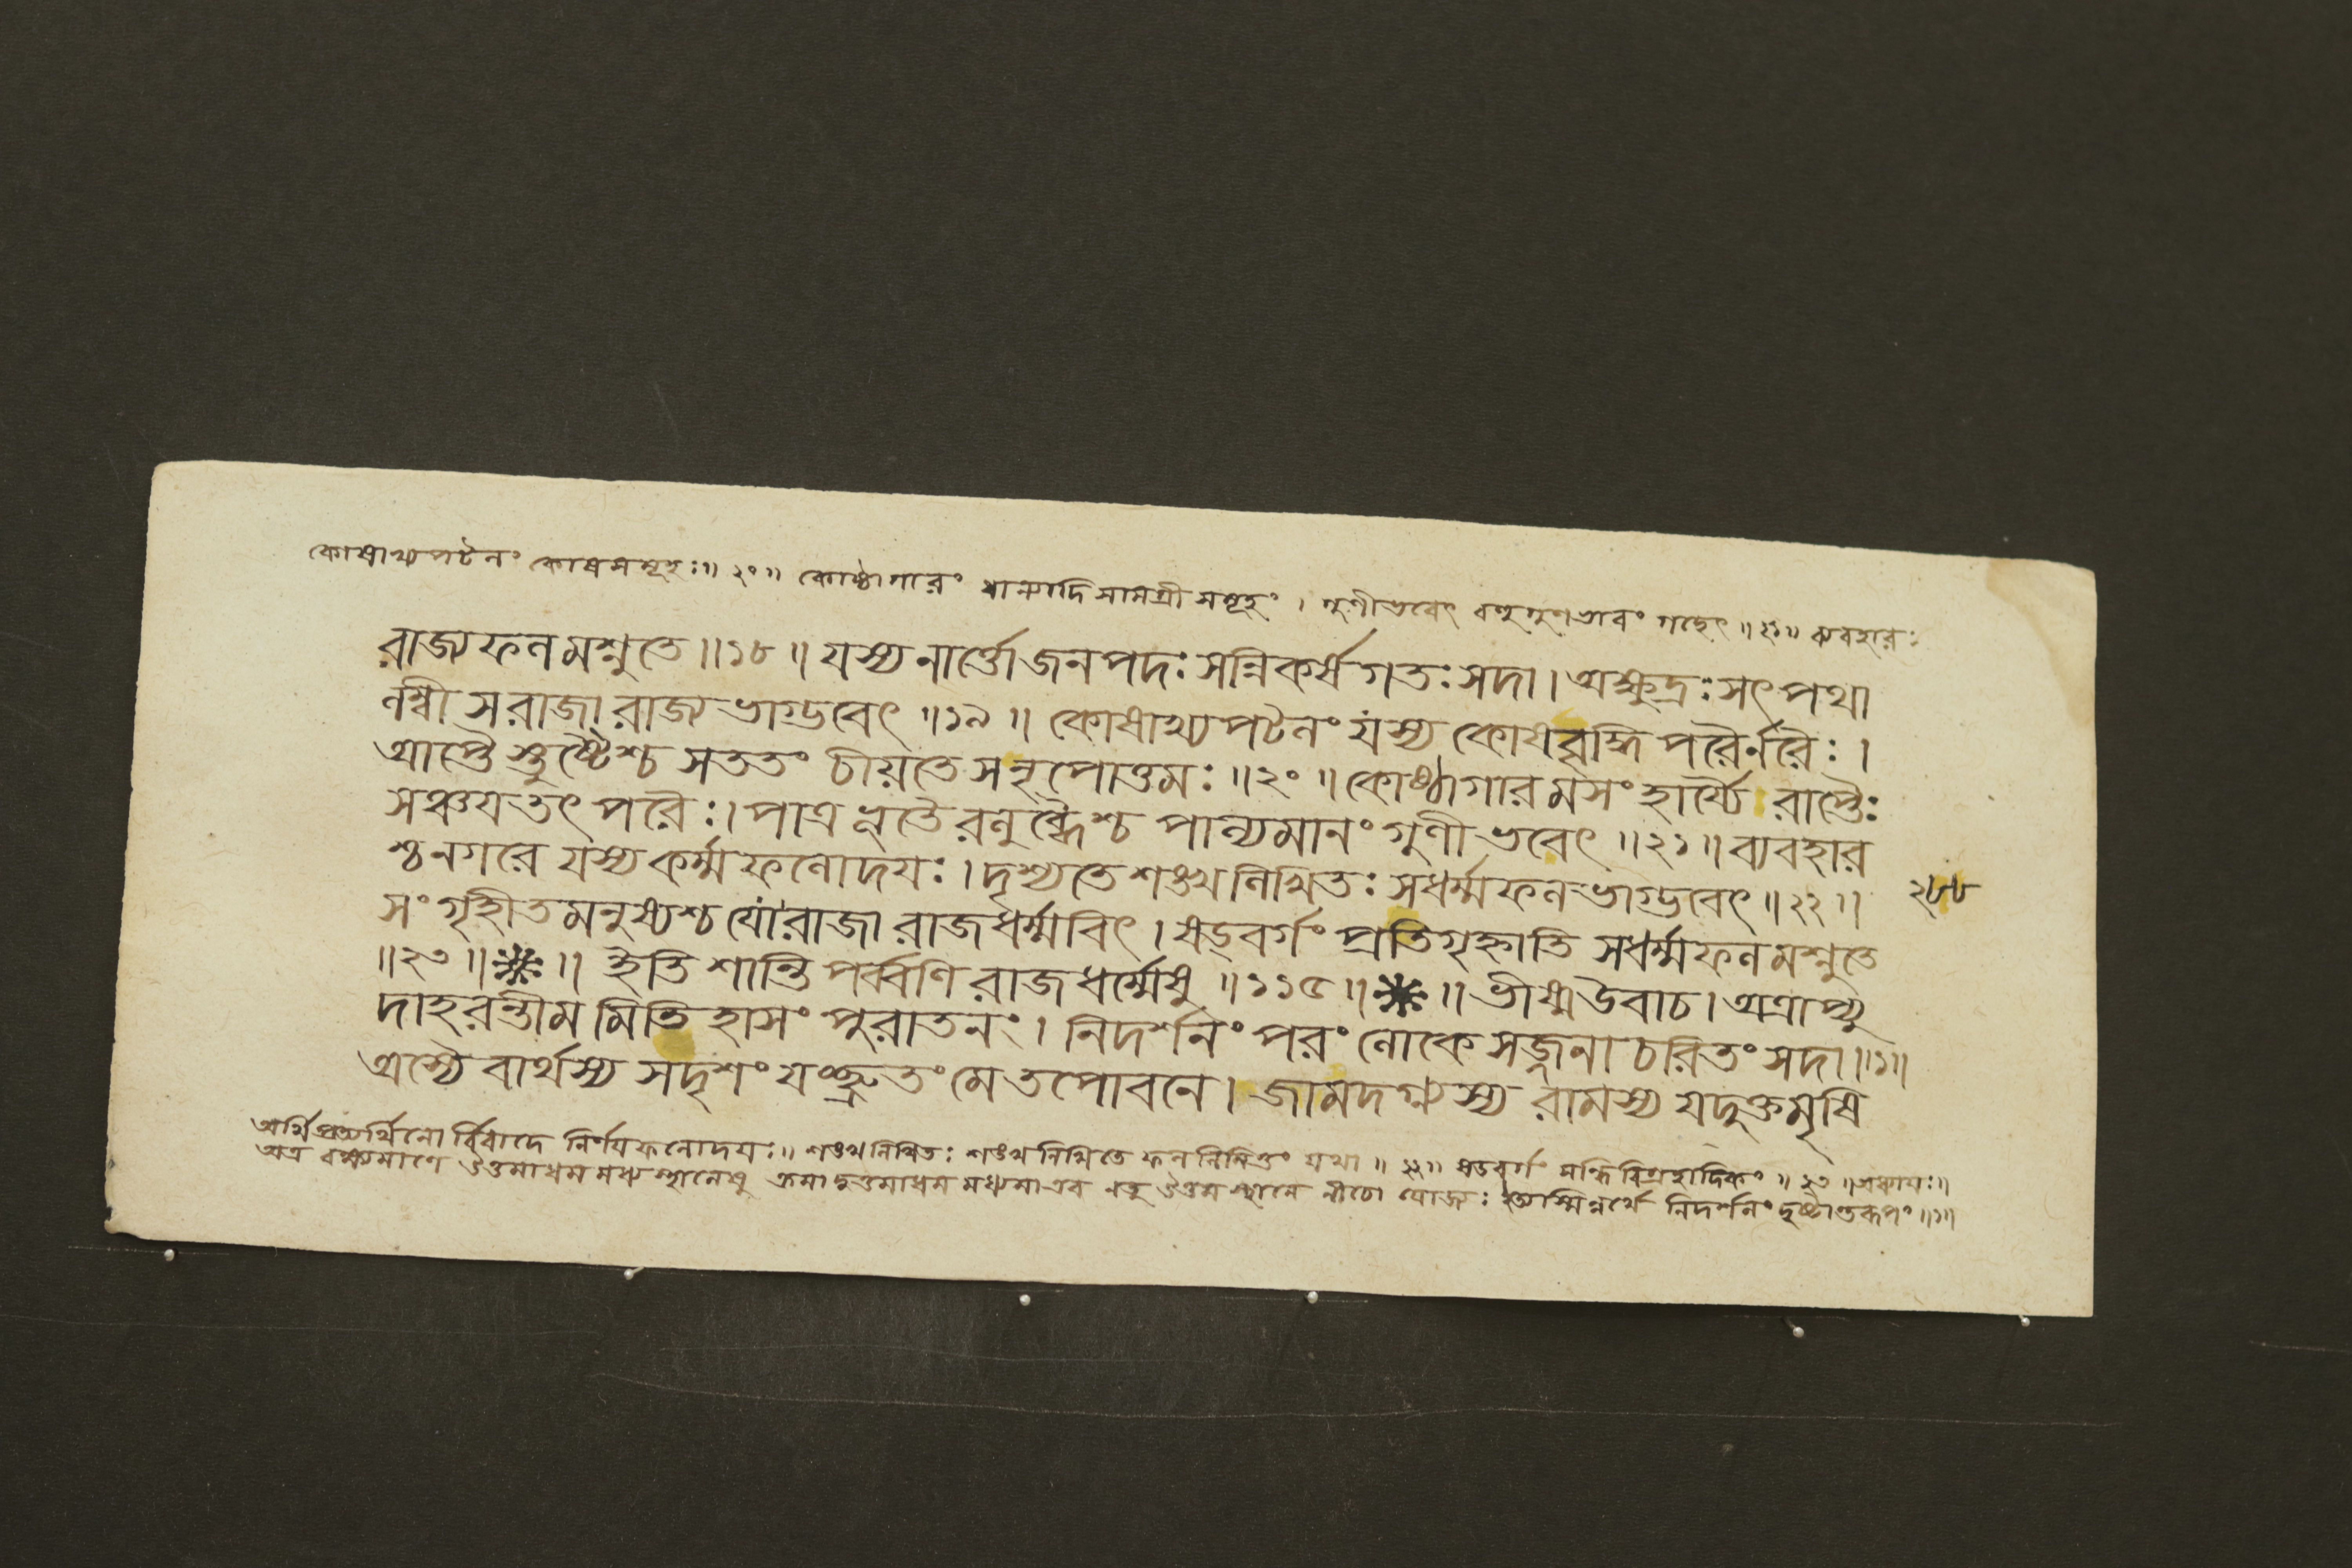 কোষাখ্যপটলং কোষসমূহঃ॥ ২০॥ কোষ্ঠাগারং ধান্যাদিসামগ্রীসমূহং । গুণীভবেৎ বহুগুণভাবং গচ্ছেৎ ॥ ২১॥ ব্যবহারঃ
রাজ্যফলমশ্নুতে ॥১৮ ॥ যস্য নার্ত্তো জনপদঃ সন্নিকর্ষগতঃ সদা । অক্ষুদ্রঃ সৎপথা
লম্বী স রাজা রাজ্যভাগ্ভবেৎ ॥১৯ ॥ কোষাখ্যপটলং যস্য কোষবৃদ্ধিপরৈর্নরৈঃ ।
আপ্তৈস্তুষ্টৈশ্চ সততং চীয়তে স নৃপোত্তমঃ ॥২০ ॥ কোষ্ঠাগারমসংহার্য্যৈরাপ্তৈঃ
সঞ্চযতৎপরৈঃ । পাত্রভূতৈরলুব্ধৈশ্চ পাল্যমানং গুণীভবেৎ ॥২১ ॥ ব্যবহার
শ্চ নগরে যস্য কর্ম্মফলোদযঃ । দৃশ্যতে শঙ্খলিখিতঃ স ধর্ম্মফলভাগ্ভবেৎ ॥ ২২ ॥
২৮৮
সংগৃহীতমনুষ্যশ্চ যো রাজা রাজধর্ম্মবিৎ । ষড্বর্গং প্রতিগৃহ্নাতি স ধর্ম্মফলমশ্নুতে
॥২৩ ॥ ※ ॥ ইতি শান্তিপর্ব্বণি রাজধর্ম্মেষু ॥১১৫ ॥ ※ ॥ ভীষ্ম উবাচ । অত্রাপ্যু
দাহরন্তীমমিতিহাসং পুরাতনং । নিদর্শনং পরং লোকে সজ্জনাচরিতং সদা ॥১॥
অস্যৈবার্থস্য সদৃশং যচ্ছ্রুতং মে তপোবনে । জামদগ্ন্যস্য রামস্য যদুক্তমৃষি
অর্থিপ্রত্যর্থিনোর্বিবাদে নির্ণযফলোদযঃ॥ শঙ্খলিখিতঃ শঙ্খলিখিতে ফলনিমিত্তং যথা ॥ ২২॥ ষডবর্গং সন্ধিবিগ্রহাদিকং ॥ ২৩ ॥অধ্যাযঃ॥
অত্র বক্ষ্যমাণে উত্তমাধমমধ্যস্থানেষু ক্রমাদুত্তমাধমমধ্যমা এব নতু উত্তমস্থানে নীচো যোজ্যঃ অস্মিন্নর্থে নিদর্শনং দৃষ্টান্তরূপং ॥১॥